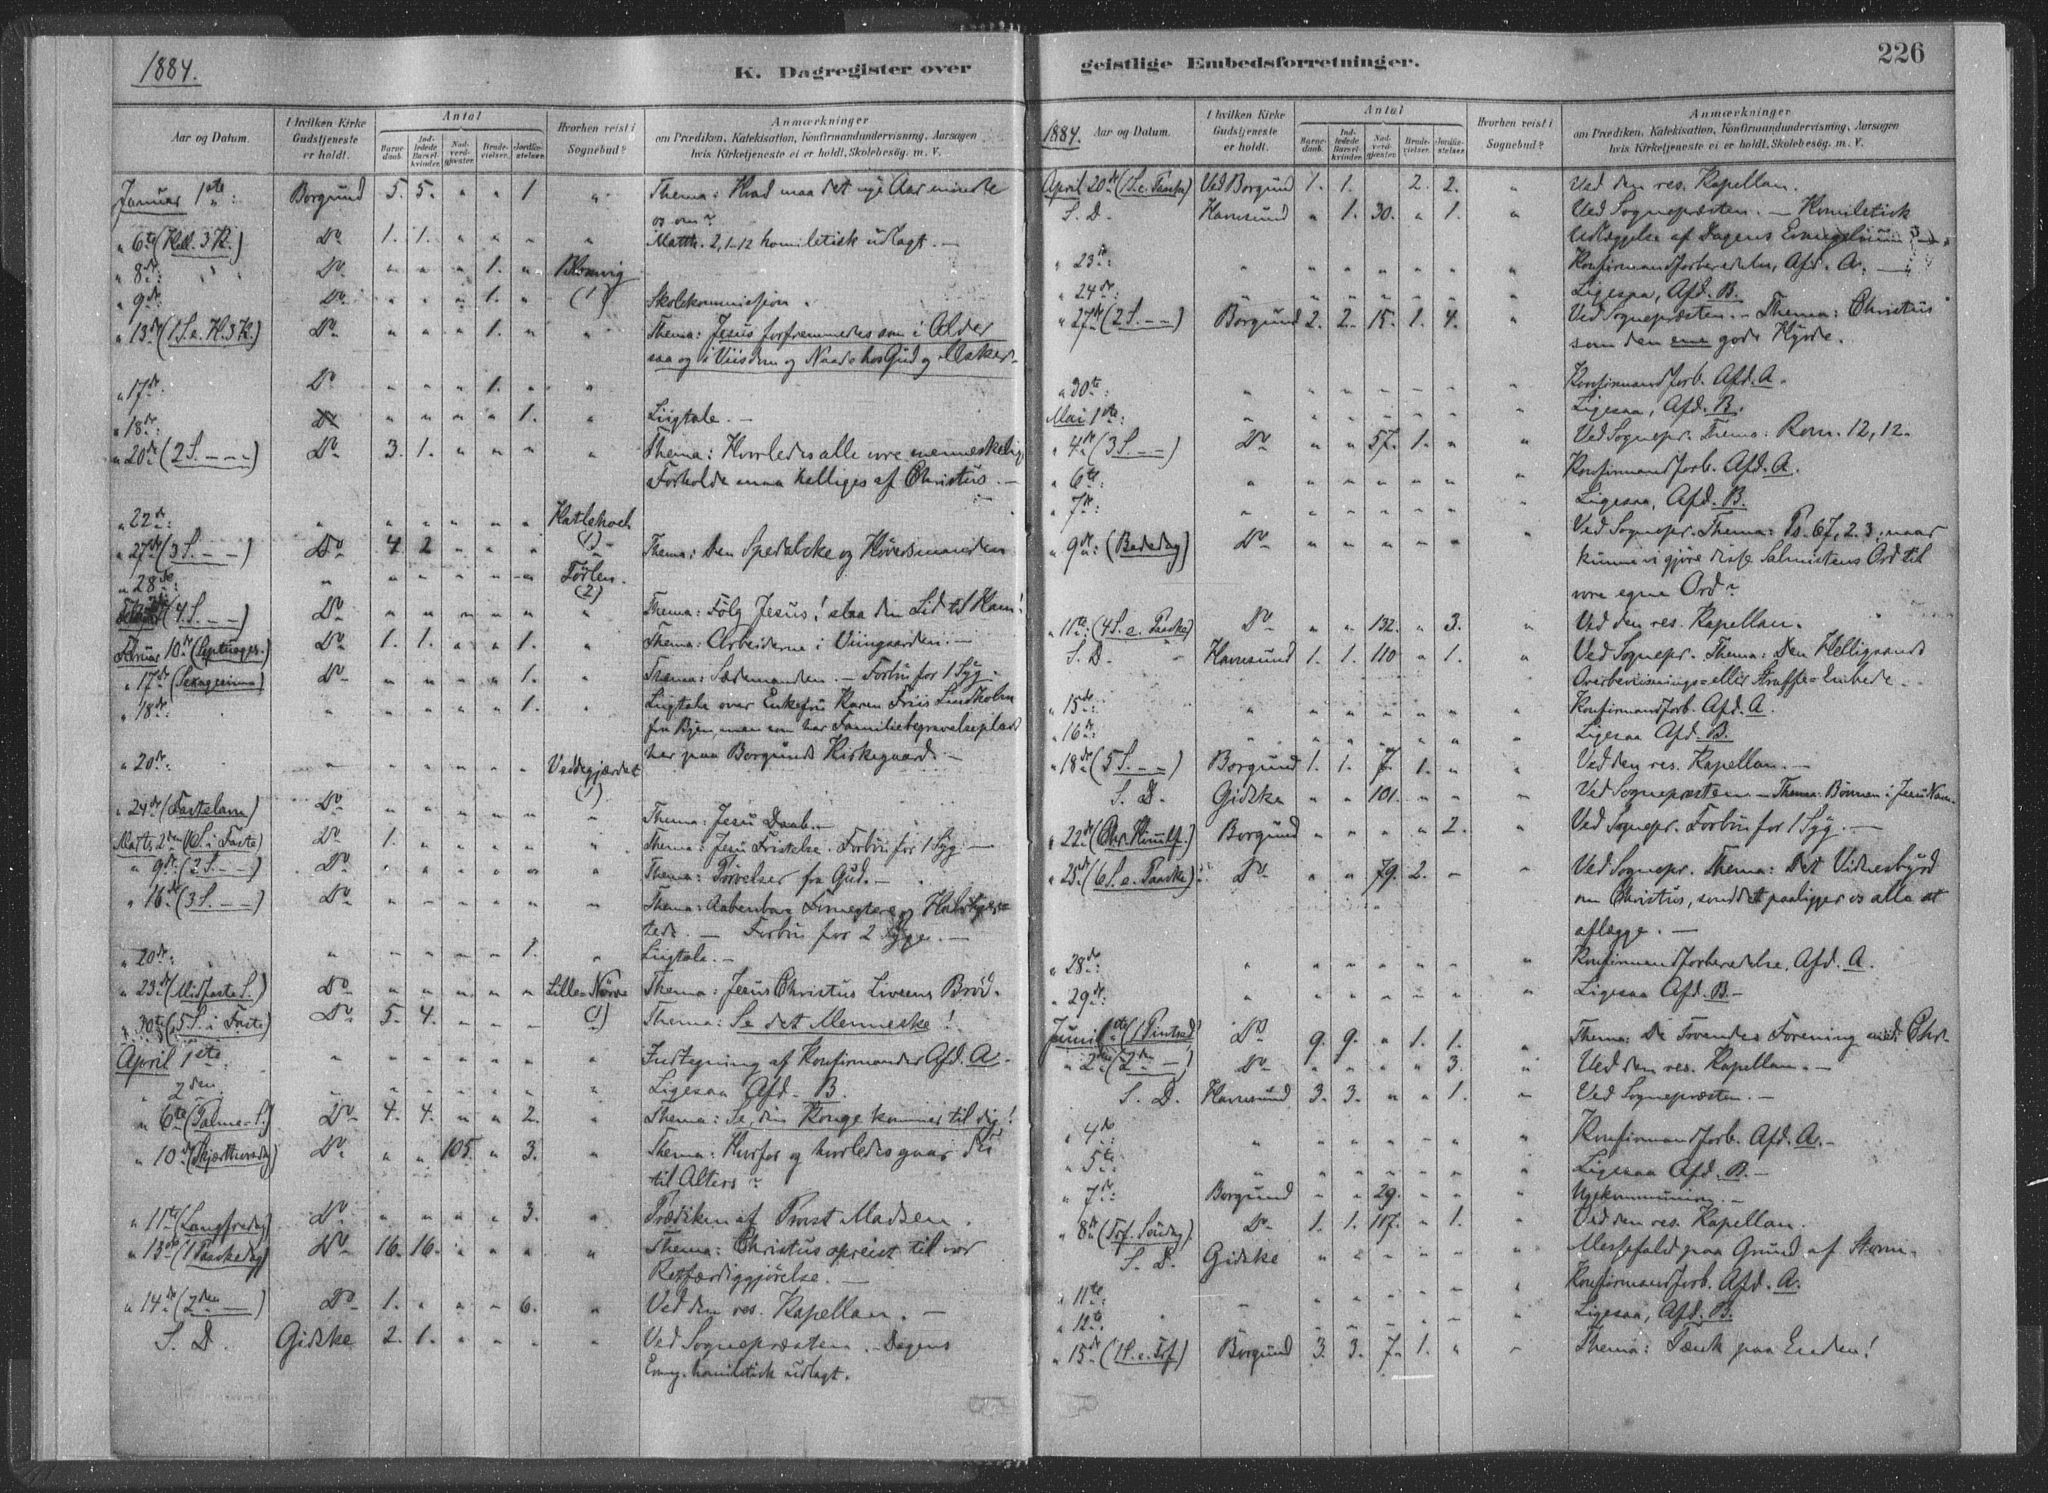 1884.
K. Dagregister over
Aar og Datum.
I hvilken Kirke Gudstjeneste er holdt.
Antal
Barnedaab.
Indledede Barselkvinder.
Nadverdgjæster.
Brudevielser.
Jordfæstelser.
Hvorhen reist i Sognebud?
Anmærkninger
om Prædiken, Katekisation, Konfirmandundervisning, Aarsagen
hvis Kirketjeneste ei er holdt, Skolebesög. m. V.
Januar 1ste: Borgund 5. 5. " " 1. " Thema: Hvad maa det nye Aar minde
os om?
" 6te (Hell. 3 K.) Do 1. 1. " " " " Matth. 2, 1-12 homiletisk udlagt. —
" 8de: " Do " " " 1. "
" 9de: Do " " " 1. " (1) Skolekommission.
" 13de (1 S. e. H. 3 K.) Do " " " 1. " " Thema: Jesus forfremmedes som i Alder
saa og i Viisdom og Naade hos Gud og Msker.
" 17de: Do " " " 1. " "
" 18de: Do " " " " 1. " Liigtale. —
" 20de (2 S. - - -) Do 3. 1. " " " " Thema: Hvorledes alle vore menneskelig.
Forholde maa helliges af Christus. —
" 22de: " " " " " "
" 27de (3 S. - -) Do 4. 2 " " " (1) Thema: Den Spedalske og Høvedsmanden
" 28de: " " " " " " (2)
(4 S. - -) Do " " " " " " Thema: Følg Jesus! slaa din Lid til Ham!
Februar 10de (Septuages.) Do 1. 1. " " 1. " Thema: Arbeiderne i Viingaarden. —
" 17de (Sexagesima) Do " " " " 1. " Thema: Sædemanden. — Forbøn for 1 Syg. —
" 18de: " " " " " 1. " Liigtale over Enkefru Karen Friis Lindholm
fra Byen, man som har Familiebegravelsesplads
her paa Borgunds Kirkegaard. —
" 20de: " " " " " " Veddegjærdet
(1)
" 24de (Fastelavn) Do " " " " " " Thema: Jesu Daab. —
Marts 2den (1 S. i Faste) Do 1. " " " " " Thema: Jesu Fristelse. Forbøn for 1 Syg. —
" 9de (2 S. - -) Do " " " " " " Thema: Prøvelser fra Gud. —
" 16de (3 S. - -) Do " " " " " " Thema: Aabenbare Fornegtere og
— Forbøn for 2 Syge. —
" 20de: " " " " " 1. " Liigtale. —
" 23de (Midfaste S.) Do " " " " " Lille-Nørve Thema: Jesus Christus Livsens Brød.
" 30te (5 S. i Faste) Do 5. 4. " " " (1) Thema: Se det Menneske!
April 1ste: " " " " " " " Indtegning af Konfirmander Afd. A.
" 2den " " " " " " " Ligesaa Afd. B.
" 6te (Palme-S.) Do 4. 4. " " 2. " Thema: Se, din Konge kommer til dig!
" 10de (Skjærthorsdag) Do " " 105. " 3. " Thema: Hvorfor og hvorledes gaar du
til Alters?
" 11te (Langfredag) Do " " " " 3. " Prædiken af Provst Madsen.
" 13de (1 Paaskedag) Do 16. 16. " " " " Thema: Christus opreist til vor
Retfærdiggjørelse. —
" 14de (2den —) Do 1. " " " 6. " Ved den res. Kapellan. —
S. D. Gidske 2. 1. " " " " Ved Sognepræsten. - Dagens
Evang. homiletisk udlagt.
geistlige Embedsforretninger.
226
1884.
Aar og Datum.
I hvilken Kirke Gudstjeneste er holdt.
Antal
Barnedaab.
Indledede Barselkvinder.
Nadverdgjæster.
Brudevielser.
Jordfæstelser.
Hvorhen reist i Sognebud?
Anmærkninger
om Prædiken, Katekisation, Konfirmandundervisning, Aarsagen
hvis Kirketjeneste ei er holdt, Skolebesög. m. V.
April 20de (1 S. e. Paaske) Ved Borgund 1. 1. 2. 2. " Ved den res. Kapellan.
S. D. Havnsund " 1. 30. " 1. " Ved Sognepræsten. — Homiletisk
Udlæggelse af Dagens Evangelium
" 23de: " " " " " " " Konfirmandforberedelse, Afd. A. —
" 24de: " " " " " " " Ligesaa, Afd. B.
" 27de (2 S. - -) Borgund 2. 2. 15. 1. 4. " Ved Sognepræsten. - Thema: Christus
som den ene gode Hyrde.
" 30te: " " " " " " " Konfirmandforb. Afd. A.
Mai 1ste: " " " " " " " Ligesaa, Afd. B.
" 4de (3 S. - -) Do " " 57. 1. " " Ved Sognepr. Thema: Rom. 12, 12.
" 6te " " " " " " " Konfirmandforb. Afd. A.
" 7de: " " " " " " " Ligesaa, Afd. B.
" 9de: (Bededag) Do " " " " " " Ved Sognepr. Thema: Ps. 67, 2.3; naar
kunne vi gjøre disse Salmistens Ord til
vore egne Ord?
" 11te: (4 S. e. Paaske) Do " " 132. " 3. " Ved den res. Kapellan.
S. D. Havnsund 1. 1. 110 " 1. " Ved Sognepr. Thema: Den Helligaands
Overbevisnings- eller Straffe-Embede.
" 15de: " " " " " " " Konfirmandforb. Afd. A.
" 16de: " " " " " " " Ligesaa Afd. B.
" 18de (5 S. - -) Borgund 1. 1. 7. 1. " " Ved den res. Kapellan. —
S. D. Gidske " " 101. " " " Ved Sognepræsten — Thema: Bønnen i Jesu Navn.
" 22de (Chr. Himmelf.) Borgund " " " " 2. " Ved Sognepr. Forbøn for 1 Syg. —
" 25de (6 S. e. Paaske): Do " " 79. 2. " " Ved Sognepr. Thema: Det Vidnesbyrd
om Christus, som det paaligger os alle at
aflægge. —
" 28de: " " " " " " " Konfirmandforberedelse, Afd. A.
" 29de: " " " " " " " Ligesaa Afd. B. —
Juni 1ste (1 Pintsed.) Do 9. 9. " 1. 1. " Thema: De Troendes Forening med Chr.
" 2den (2den —) Do " " " " 3. " Ved den res. Kapellan. —
S. D. Havnsund 3. 3. " " 1. " Ved Sognepræsten. —
" 4de " " " " " " " Konfirmandforb. Afd. A. —
" 5te: " " " " " " " Ligesaa Afd. B. —
" 7de: Borgund " " 29. " " " Ugekommunion. —
" 8de (Tref. Søndag). Do 1. 1. 107. " 1. " Ved den res. Kapellan.
S. D. Gidske " " " " " " Messefald paa Grund af Storm.
" 11te: " " " " " " " Konfirmandforb. Afd. A.
" 12te " " " " " " " Ligesaa, Afd. B.
" 15de (1 S. e. Tref.) Borgund 3. 3. 7. 1. " " Thema: Tænk paa Enden!